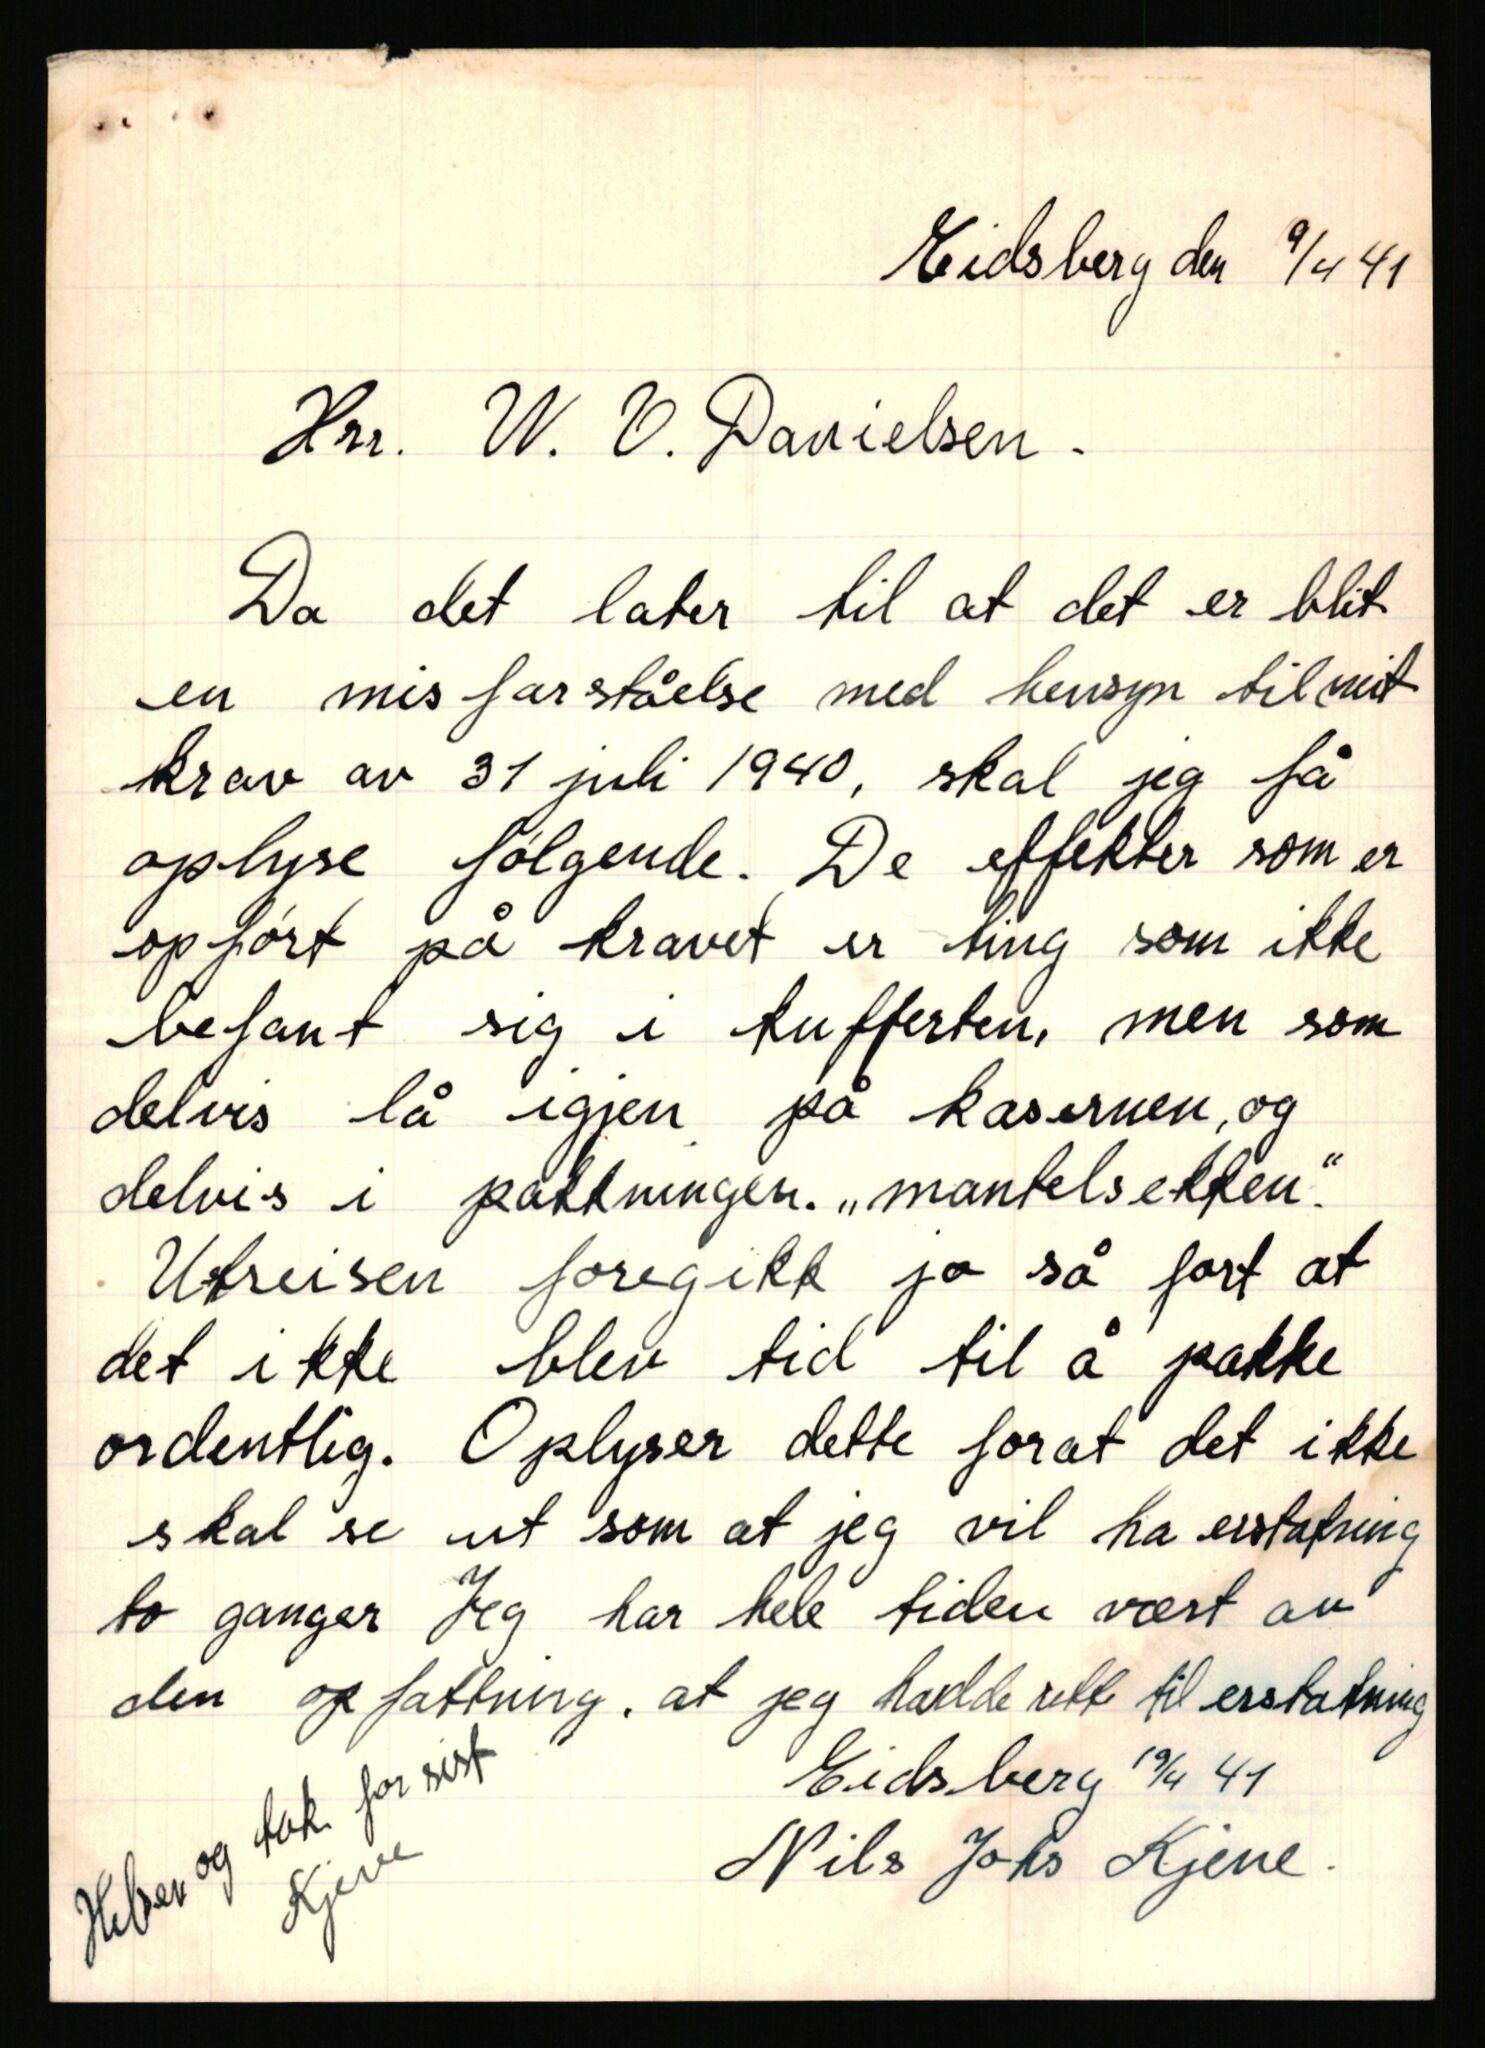 Eidsberg den 9/4 41
Hrr. W. V. Danielsen.
Da det later til at det er blit
en misforståelse med hensyn til mit
krav av 31 juli 1940, skal jeg få
oplyse følgende. De effekter som er
opført på kravet er ting som ikke
befant sig i kufferten, men som
delvis lå igjen på kasernen, og
delvis i pakkningen. „mantelsekken“.
Utreisen foregikk jo så fort at
det ikke blev tid til å pakke
ordentlig. Oplyser dette forat det ikke
skal se ut som at jeg vil ha erstatning
to ganger Jeg har hele tiden vært av
den opfattning, at jeg hadde rett til erstatning
Eidsberg 19/4 41
Nils Johs Kjene.
Hilsen og takk for sist
Kjene